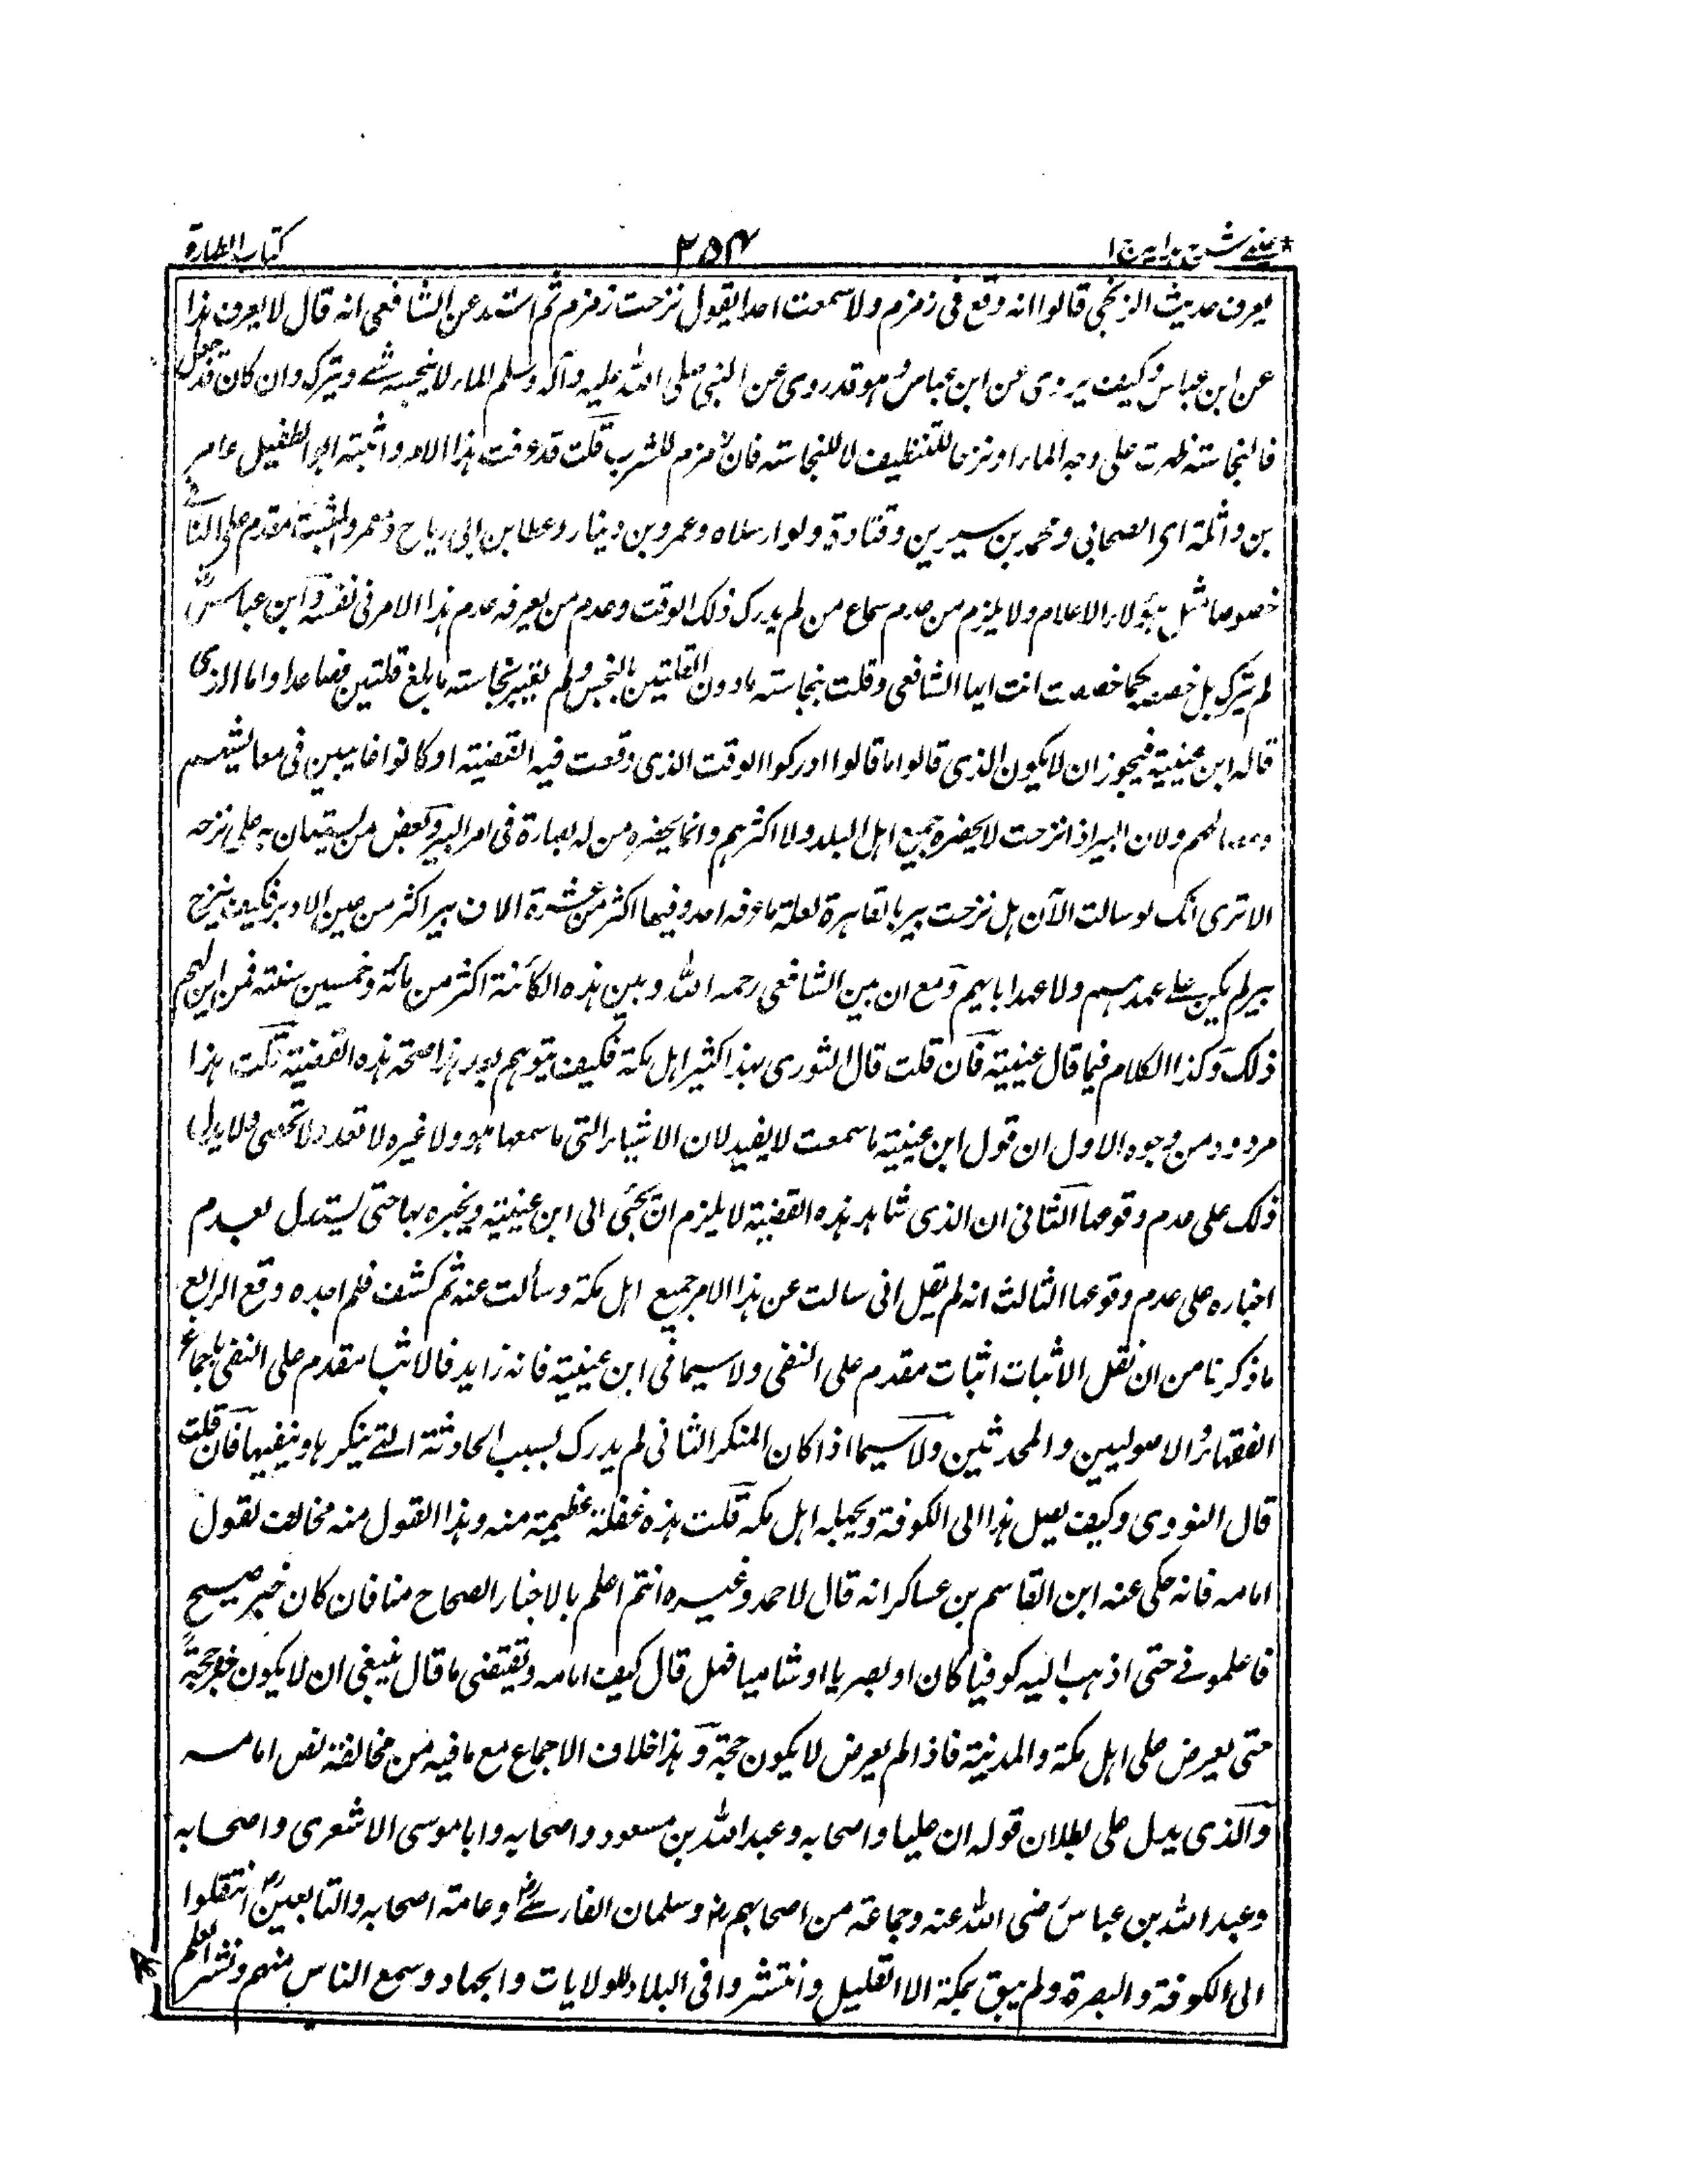 عینی شرح ہدایہ ج ۱ ۲۵۴ کتاب الطہارة
یعرف حدیث الزنجی قالوا انه وقع فی زمزم ولا سمعت احدا یقول نزحت زمزم ثم اسند عن الشافعی انه قال لا یعرف ہذا
عن ابن عباس وکیف یروی عن ابن عباس وہو قد روی عن النبی صلی اللہ علیه وآله وسلم الماء لا ینجسه شے ویترک وان کان قد فعل
فالنجاسته ظہرت علی وجه الماء او نزحها للتنظیف لا للنجاسته فان زمزم للشرب قلت قد عرفت ہذا الامر واثبته ابو الطفیل عامر
بن واثلة ای الصحابی ومحمد بن سیرین وقتادة ولو ارسلاه وعمرو بن دینار وعطا بن ابی رباح ومعمر والمثبت مقدم علی النافے
خصوصا مثل ہؤلاء الاعلام ولا یلزم من عدم سماع من لم یدرک ذلک الوقت وعدم من یعرفه عدم ہذا الامر فی نفسه وابن عباسؓ
لم یترک بل خصصه کما خصصت انت ایہا الشافعی وقلت بنجاسته مادون القلتین بالنجس ولم تغییر نجاسته ما بلغ قلتین فصاعدا واما الذی
قاله ابن عیینة فیجوز ان لا یکون الذی قالوا ما قالوا ادرکوا الوقت الذی وقعت فیه القضیة او کانوا غایبین فی معایشہم
لہم ولان البیر اذا نزحت لا یحضره جمیع اہل البلد ولا اکثرہم وانما یحضره من له بصارة فی امر البیر وبعض من لیستعان به علی نزحه
الا تری انک لو سالت الآن ہل نزحت بیر بالقاہرة لعلة ما عرفه احد وفیها اکثر من عشرة الاف بیر اکثر من عین الاو بیر فکیف ینزح
بیر لم یکن علے عہدہم ولا عہد اباہیم ومع ان بین الشافعی رحمه اللہ وبین ہذه الکائنة اکثر من مائة وخمسین سنته فمن این لہم
ذلک وکذا الکلام فیما قال عیینة فان قلت قال الثوری بہذا کثیر اہل مکة فکیف یتوہم بعد ہذا صحة ہذه القضیة قلت ہذا
مردود من وجوه الاول ان قول ابن عیینة ما سمعت لا یفید لان الاشیاء التی ما سمعها ہو ولا غیره لا تعد ولا تحصی ولا یدل
ذلک علی عدم وقوعها الثانی ان الذی شاہد ہذه القضیة لا یلزم ان یجئی الی ابن عیینة ویخبره بہا حتی یستدل بعدم
اخباره علی عدم وقوعها الثالث انه لم یقل انی سالت عن ہذا الامر جمیع اہل مکة وسألت عنه ثم کشف فلم اجده وقع الرابع
ما ذکرنا من ان نقل الاثبات اثبات مقدم علی النفی ولا سیما فی ابن عیینة فانه زاید فالاثبا مقدم علی النفی باجماع
الفقہاء والاصولیین والمحدثین ولا سیما اذا کان المنکر الثانی لم یدرک بسبب الحادثة التے ینکرہا وینفیہا فان قلت
قال النووی وکیف یصل ہذا الی الکوفة ویجہله اہل مکه قلت ہذه غفلة عظیمة منه وہذا القول منه مخالف لقول
امامه فانه حکی عنه ابن القاسم بن عساکر انه قال لاحمد وغیره انتم اعلم بالاخبار الصحاح منا فان کان خبر صیح
فاعلمونے حتی اذہب الیه کوفیا کان او بصریا او شامیا فہل قال کیف امامه وتقتضی ما قال ینبغی ان لا یکون خبر حجة
حتی یعرض علی اہل مکة والمدینة فاذا لم یعرض لا یکون حجة وہذا خلاف الاجماع مع ما فیه من مخالفة نص امامه
والذی یدل علی بطلان قوله ان علیا واصحابه وعبداللہ بن مسعود واصحابه وابا موسی الاشعری واصحابه
وعبداللہ بن عباس رضی اللہ عنه وجماعة من اصحابہم رضہ وسلمان الفارسےؓ وعامة اصحابه والتابعینؓ انتقلوا
الی الکوفة والبصرة ولم یبق بمکة الا القلیل وانتشروا فی البلاد للولایات والجہاد وسمع الناس منہم ونشر العلم